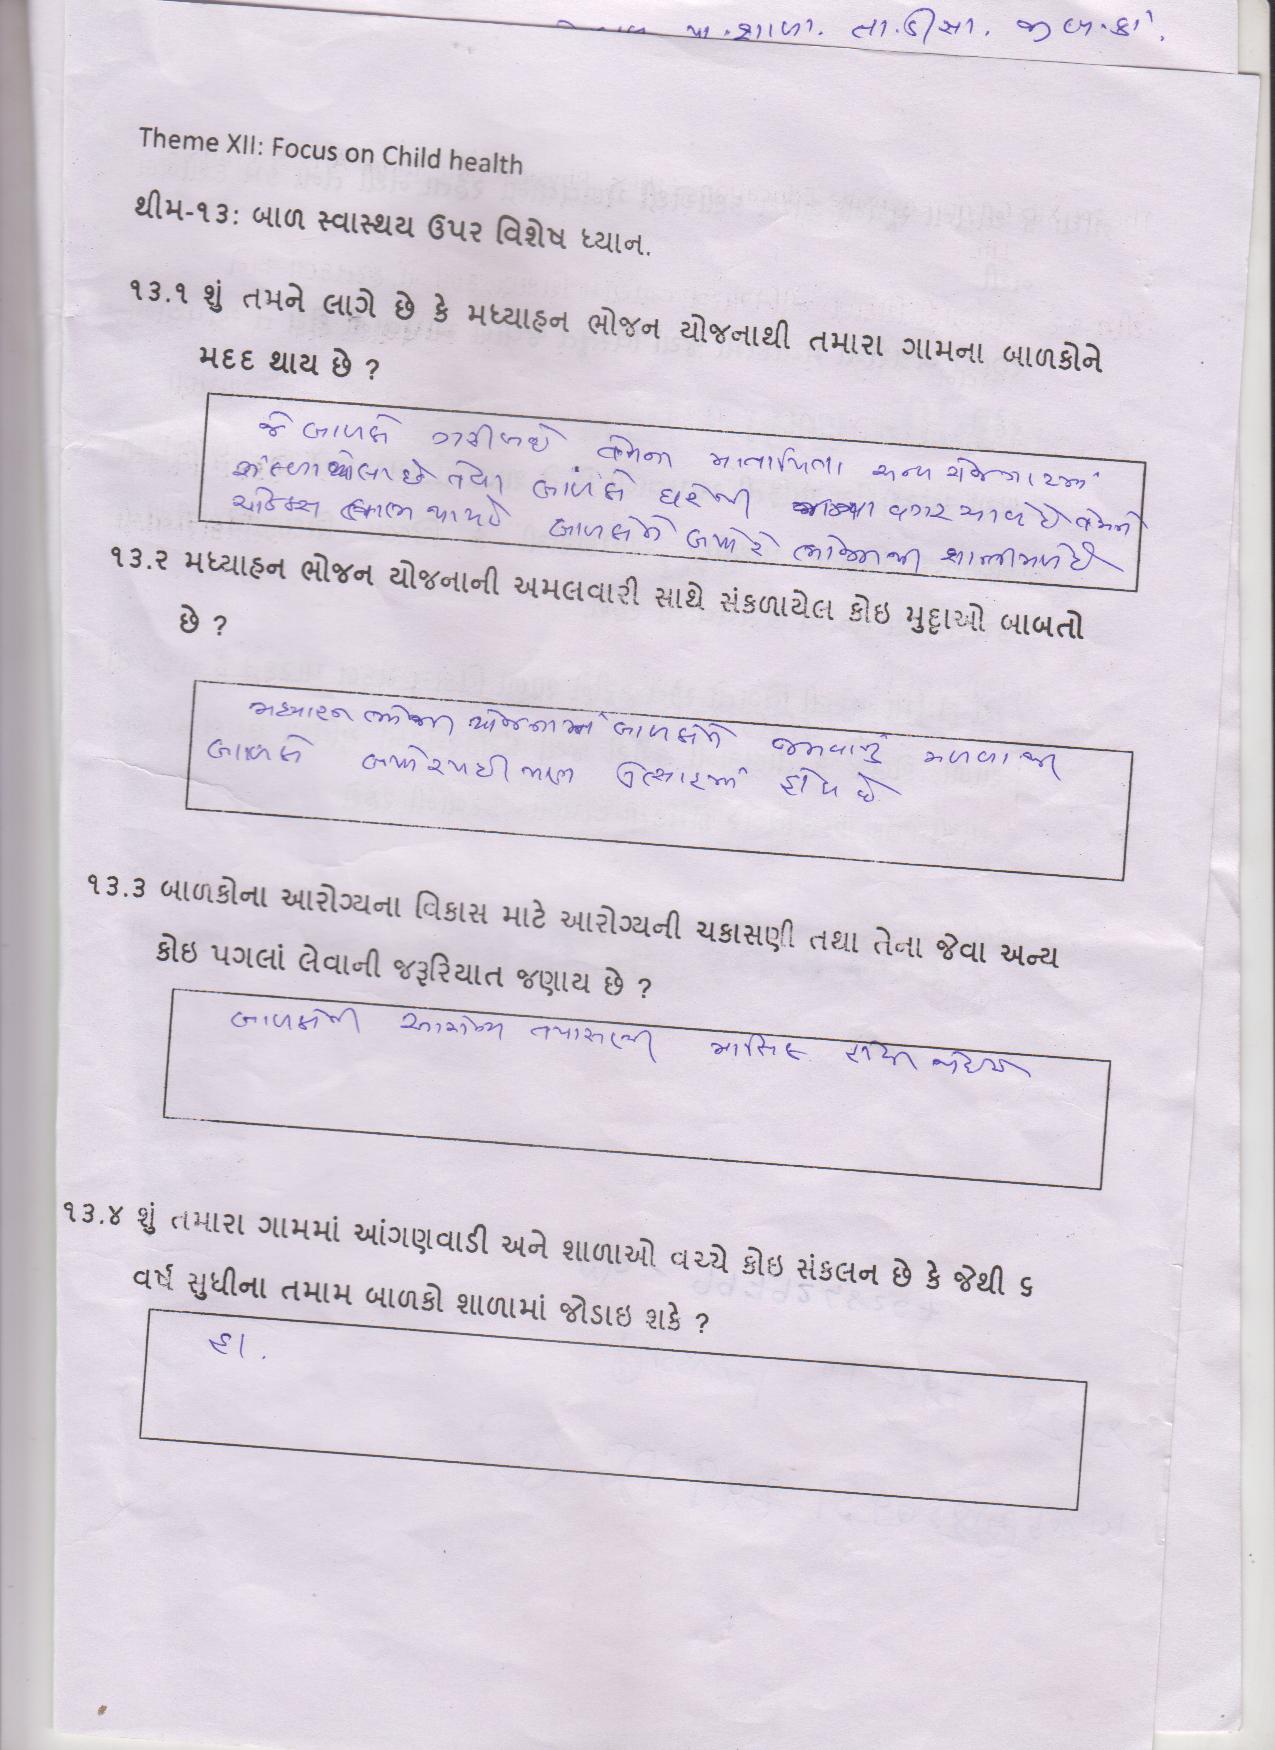 પ્રા.શાળા. તા.ડીસા. જી બ.કાં.
Theme XII: Focus on Child health
થીમ-૧૩: બાળ સ્વાસ્થય ઉપર વિશેષ ધ્યાન.
૧૩.૧ શું તમને લાગે છે કે મધ્યાહન ભોજન યોજનાથી તમારા ગામના બાળકોને
મદદ થાય છે ?
જે બાળકો ગરીબછે તેમના માતાપિતા અન્ય રોજગારમાં
તેવા બાળકો ઘરેથી વગર આવે છે તેમને
બાળકોને બપોરે ભોજનથી
૧૩.૨ મધ્યાહન ભોજન યોજનાની અમલવારી સાથે સંકળાયેલ કોઇ મુદ્દાઓ બાબતો
છે ?
મધ્યાહન ભોજન યોજનામાં બાળકોને જમવાનું મળવાથી
બાળકો બપોરપછી પણ ઉત્સાહમાં હોય છે
૧૩.૩ બાળકોના આરોગ્યના વિકાસ માટે આરોગ્યની ચકાસણી તથા તેના જેવા અન્ય
કોઇ પગલાં લેવાની જરૂરિયાત જણાય છે ?
બાળકોની આરોગ્ય તપાસણી માસિક હોવી જોઇએ
૧૩.૪ શું તમારા ગામમાં આંગણવાડી અને શાળાઓ વચ્ચે કોઇ સંકલન છે કે જેથી ૬
વર્ષ સુધીના તમામ બાળકો શાળામાં જોડાઇ શકે ?
હા.